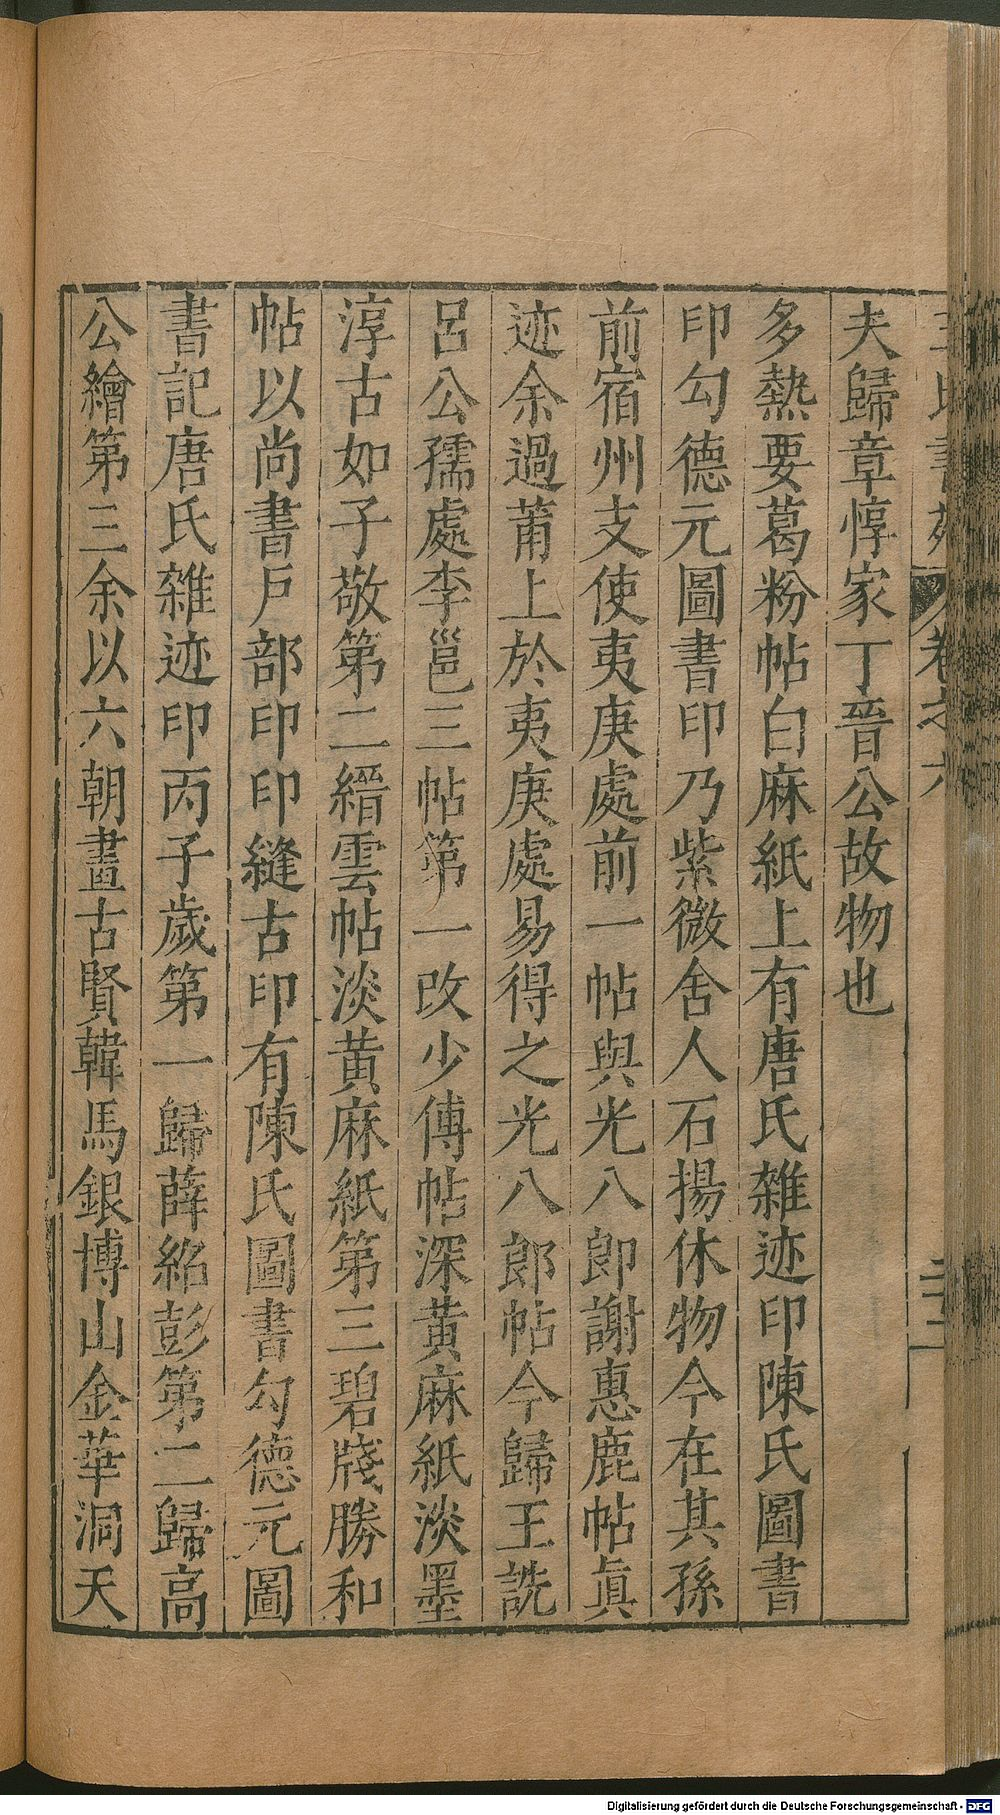 夫歸章惇家丁晉公故物也
多熱要葛粉帖白麻紙上有唐氏雜迹印陳氏圖書
印勾德元圖書印乃紫微舍人石揚休物今在其孫
前宿州支使夷庚處前一帖與光八郎謝惠鹿帖眞
迹余過莆上於夷庚處易得之光八郎帖今歸王詵
呂公孺處李邕三帖第一改少傅帖深黃麻紙淡墨
淳古如子敬第二縉雲帖淡黃麻紙第三碧牋勝和
帖以尚書戶部印印縫古印有陳氏圖書勾德元圖
書記唐氏雜迹印丙子歲第一歸薛紹彭第二歸高
公繪第三余以六朝畫古賢韓馬銀博山金華洞天
Digitalisierung gefördert durch die Deutsche Forschungsgemeinschaft - DFG